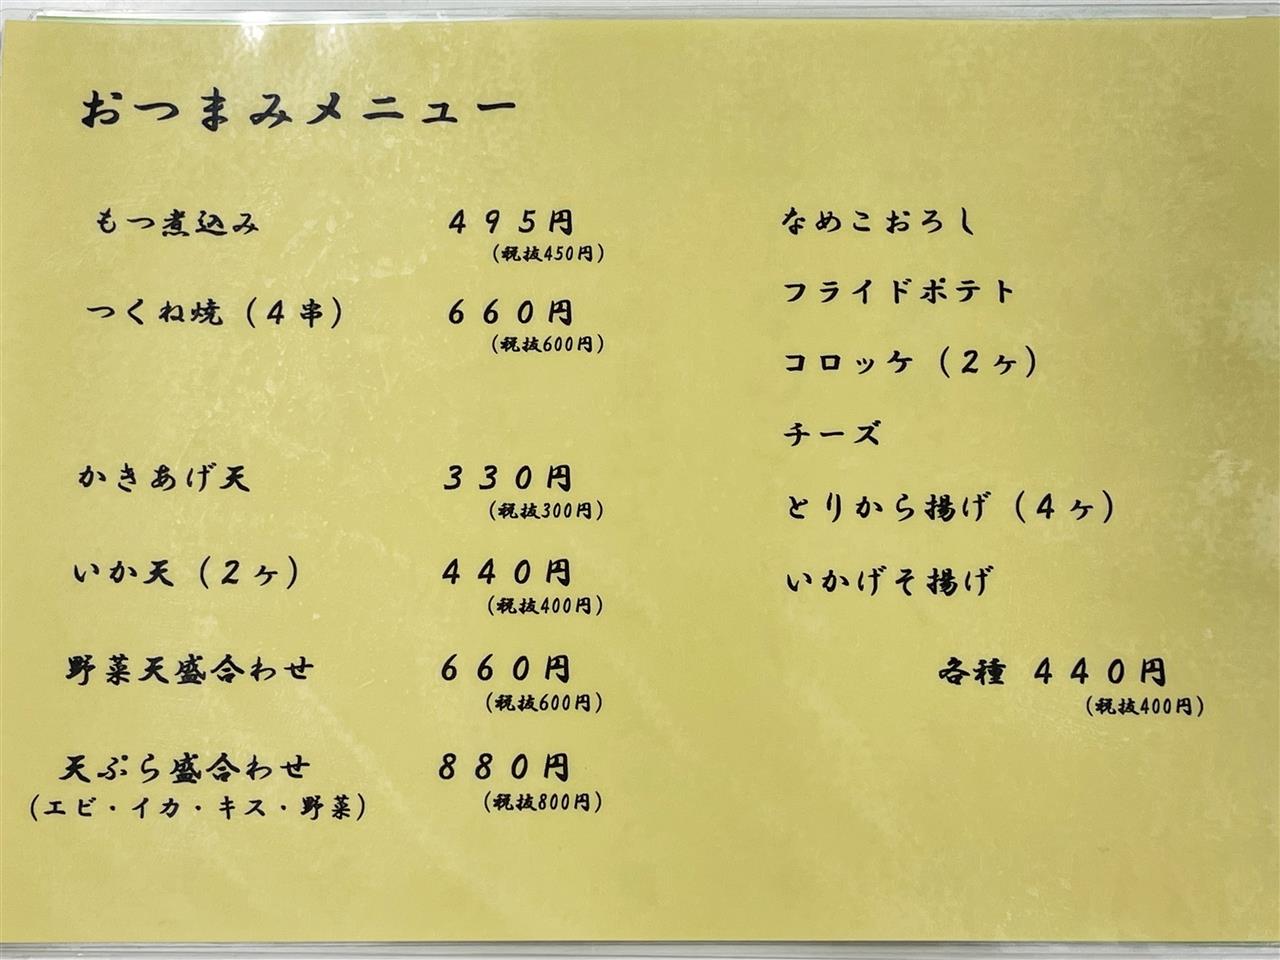 おつまみメニュー
もつ煮込み 495円
(税抜450円)
つくね焼(4串) 660円
(税抜600円)
かきあげ天 330円
(税抜300円)
いか天(2ヶ) 440円
(税抜400円)
野菜天盛合わせ 660円
(税抜600円)
天ぷら盛合わせ 880円
(エビ・イカ・キス・野菜) (税抜800円)
なめこおろし
フライドポテト
コロッケ(2ヶ)
チーズ
とりから揚げ(4ヶ)
いかげそ揚げ
各種 440円
(税抜400円)